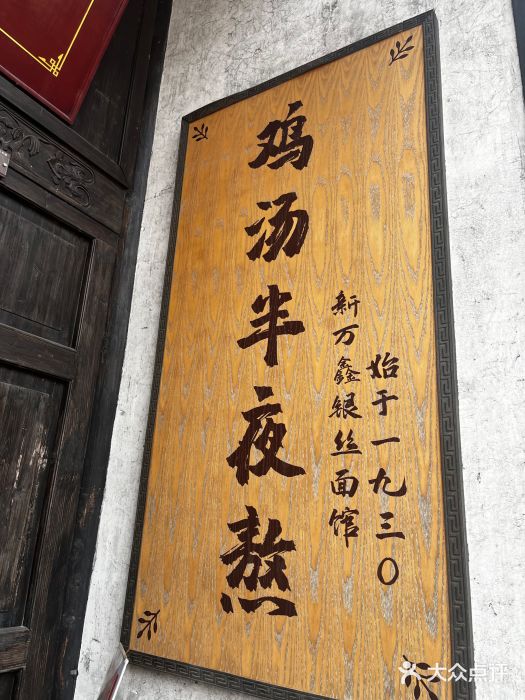 鸡汤半夜熬
始于一九三〇
新万鑫银丝面馆
大众点评